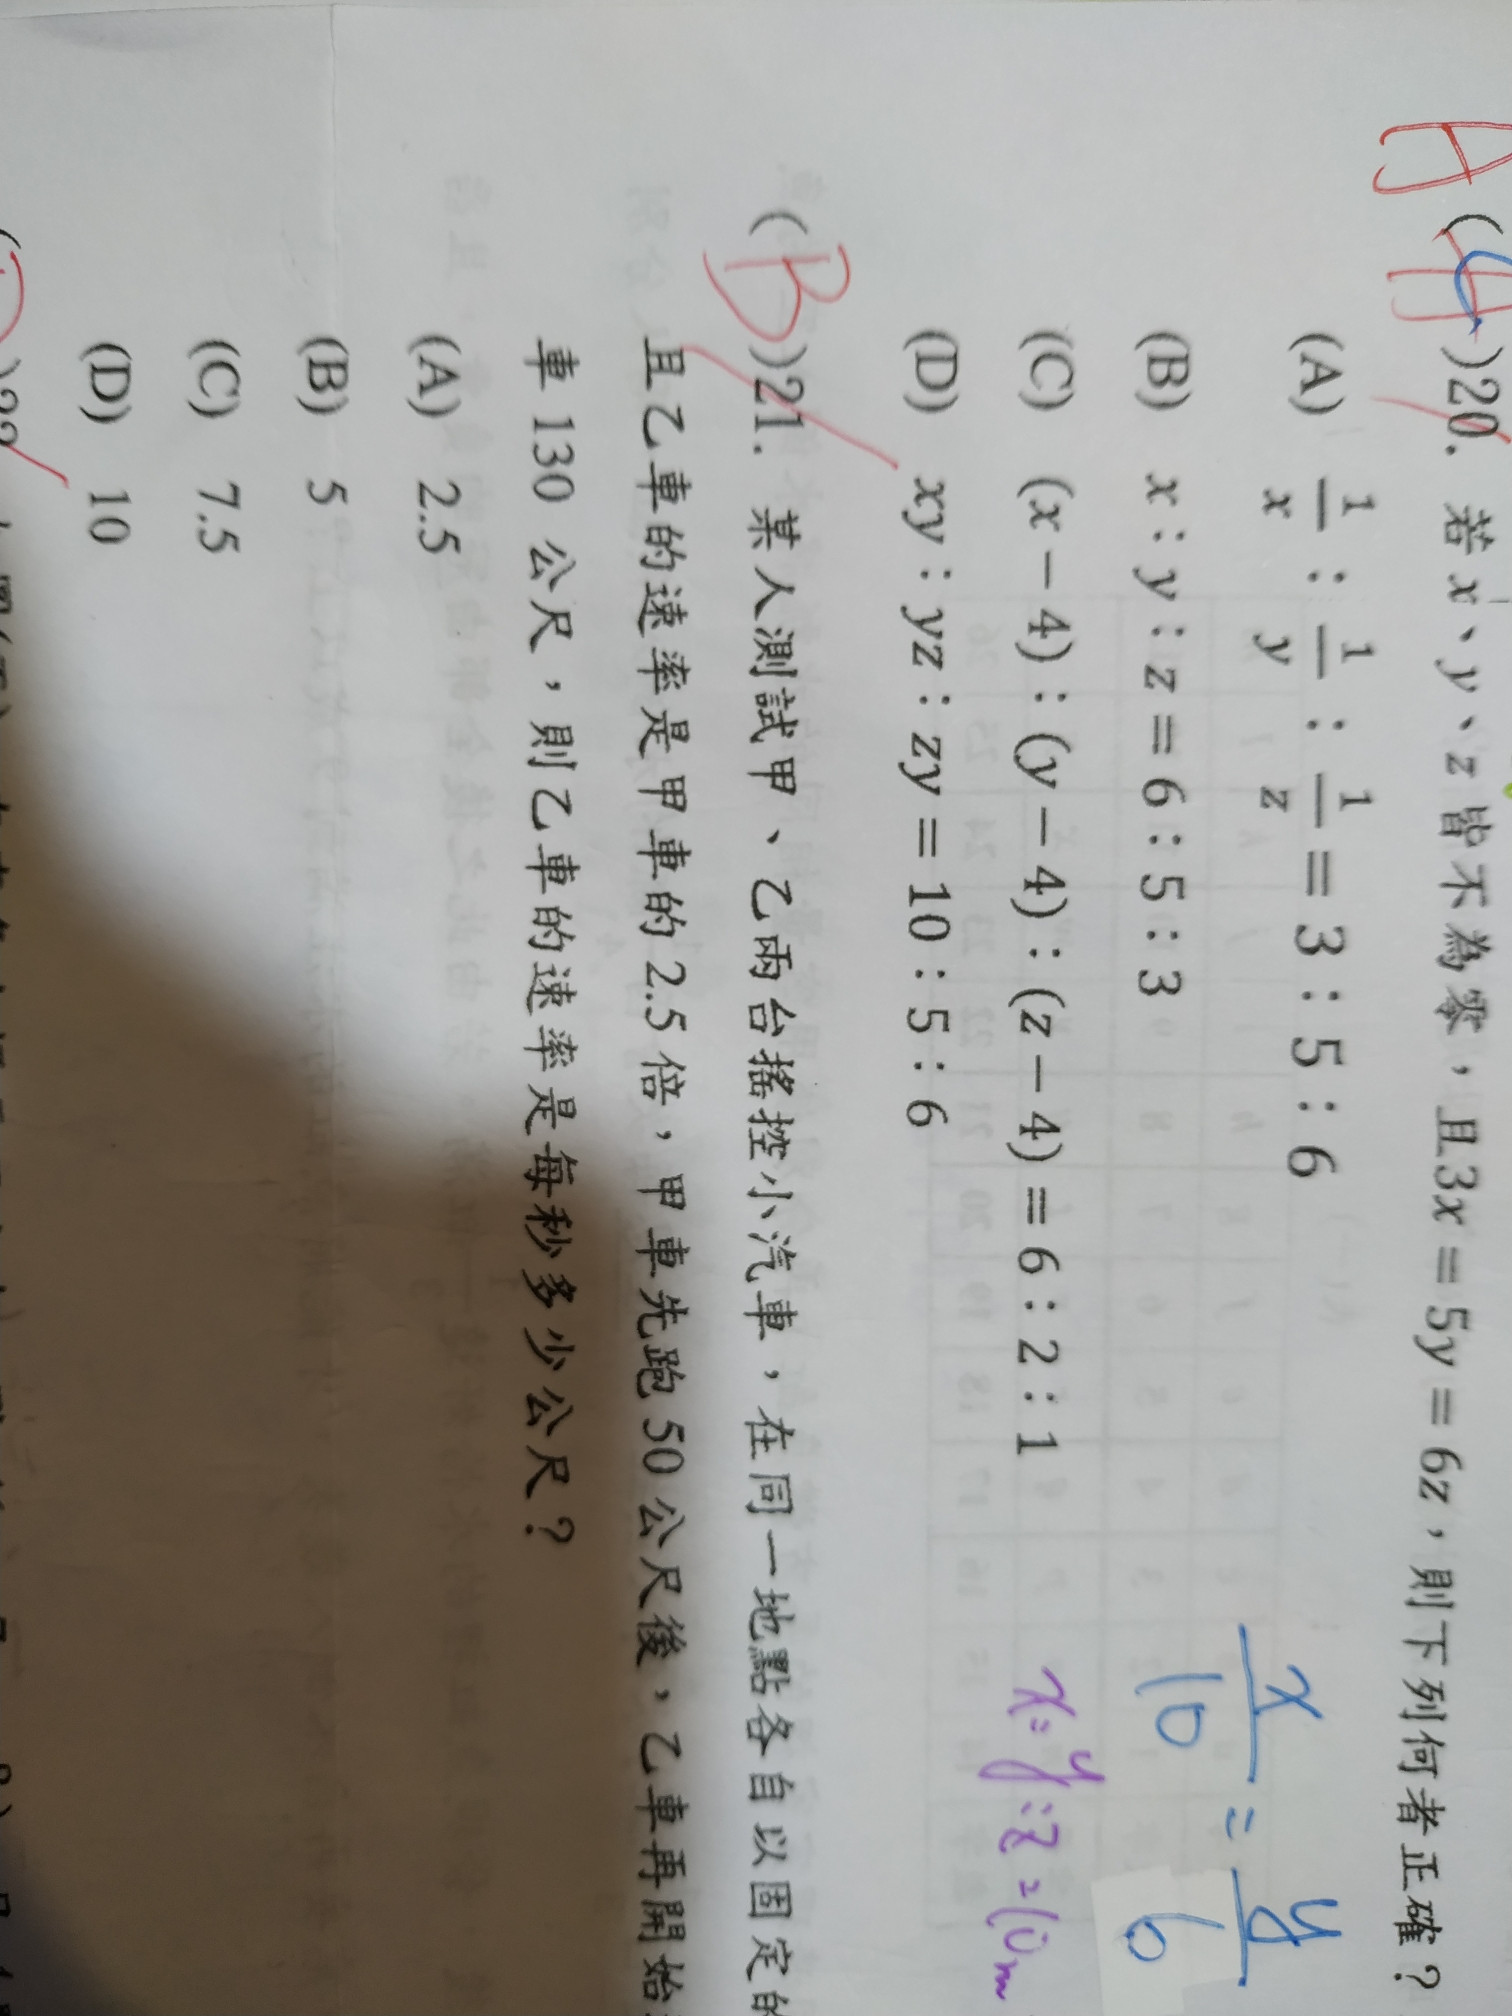 A
( )20. 若 x、y、z 皆不為零，且3x = 5y = 6z，則下列何者正確？
(A) 1/x : 1/y : 1/z = 3 : 5 : 6
(B) x : y : z = 6 : 5 : 3
(C) (x − 4) : (y − 4) : (z − 4) = 6 : 2 : 1
(D) xy : yz : zy = 10 : 5 : 6
x/10 = y/6
x : y : z = 10m
(B)21. 某人測試甲、乙兩台搖控小汽車，在同一地點各自以固定的
且乙車的速率是甲車的 2.5 倍，甲車先跑 50 公尺後，乙車再開始
車 130 公尺，則乙車的速率是每秒多少公尺？
(A) 2.5
(B) 5
(C) 7.5
(D) 10